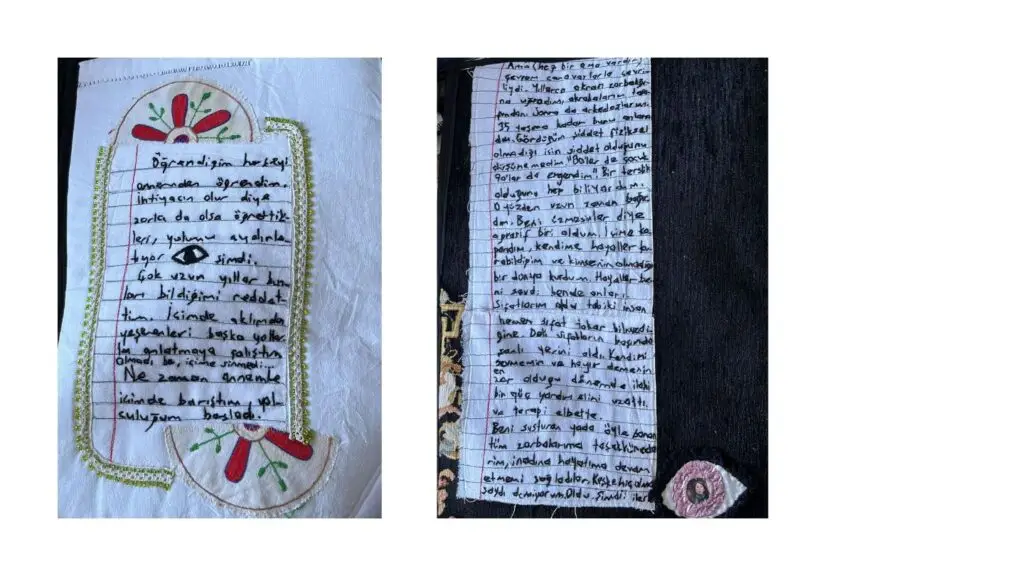 Öğrendiğim herşeyi
annemden öğrendim.
ihtiyacın olur diye
zorla da olsa öğrettik-
leri, yolumu aydınla-
tıyor şimdi.
Çok uzun yıllar bun-
ları bildiğimi reddet-
tim. İçimde aklımda
yeşerenleri başka yollar-
la anlatmaya çalıştım
olmadı be, içime sinmedi...
Ne zaman annemle
içimde barıştım, yol-
culuğum başladı.
Ama (hep bir ama vardır)
çevrem canavarlarla çevri
liydi. Yıllarca akran zorbalığı-
na uğradım, akrabalarım
sonra da arkadaşlarım.
35 yaşıma kadar bunu anlama
dım. Gördüğüm şiddet fiziksel
olmadığı için şiddet olduğunu
düşünemedim. "80'ler de çocuk
90'lar da ergendim." Bir terslik
olduğunu hep biliyordum.
O yüzden uzun zaman
Beni diye
agresif biri oldum. İçime ka
pandım, kendime hayaller ku
rabildiğim ve kimsenin olmadığı
bir dünya kurdum. Hayaller be-
ni sevdi, bende onları.
Sıfatlarım oldu tabiki insan
hemen sıfat takar bilmedi
ğine. Deli sıfatların başında
şanlı yerini aldı. Kendimi
sevmemin ve hayır demenin
en
zor olduğu dönemde ilahi
bir güç yardım elini uzattı,
ve terapi elbette.
Beni susturan yada öyle sanan
tüm zorbalarıma teşekkür ede
rim, inadına hayatıma devam
etmemi sağladılar. Keşke hiç olma
saydı demiyorum. Oldu. Şimdi iler